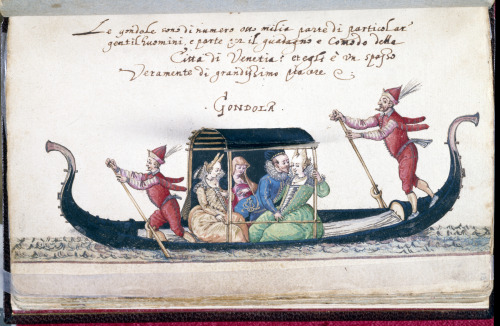 Le gondole sono di numero otto milia parte di particolar
gentilhuomini, e parte per il guadagno e Comodo della
Città di Venetia: et egli è un spasso
Veramente di grandissimo piacere
· GONDOLA ·